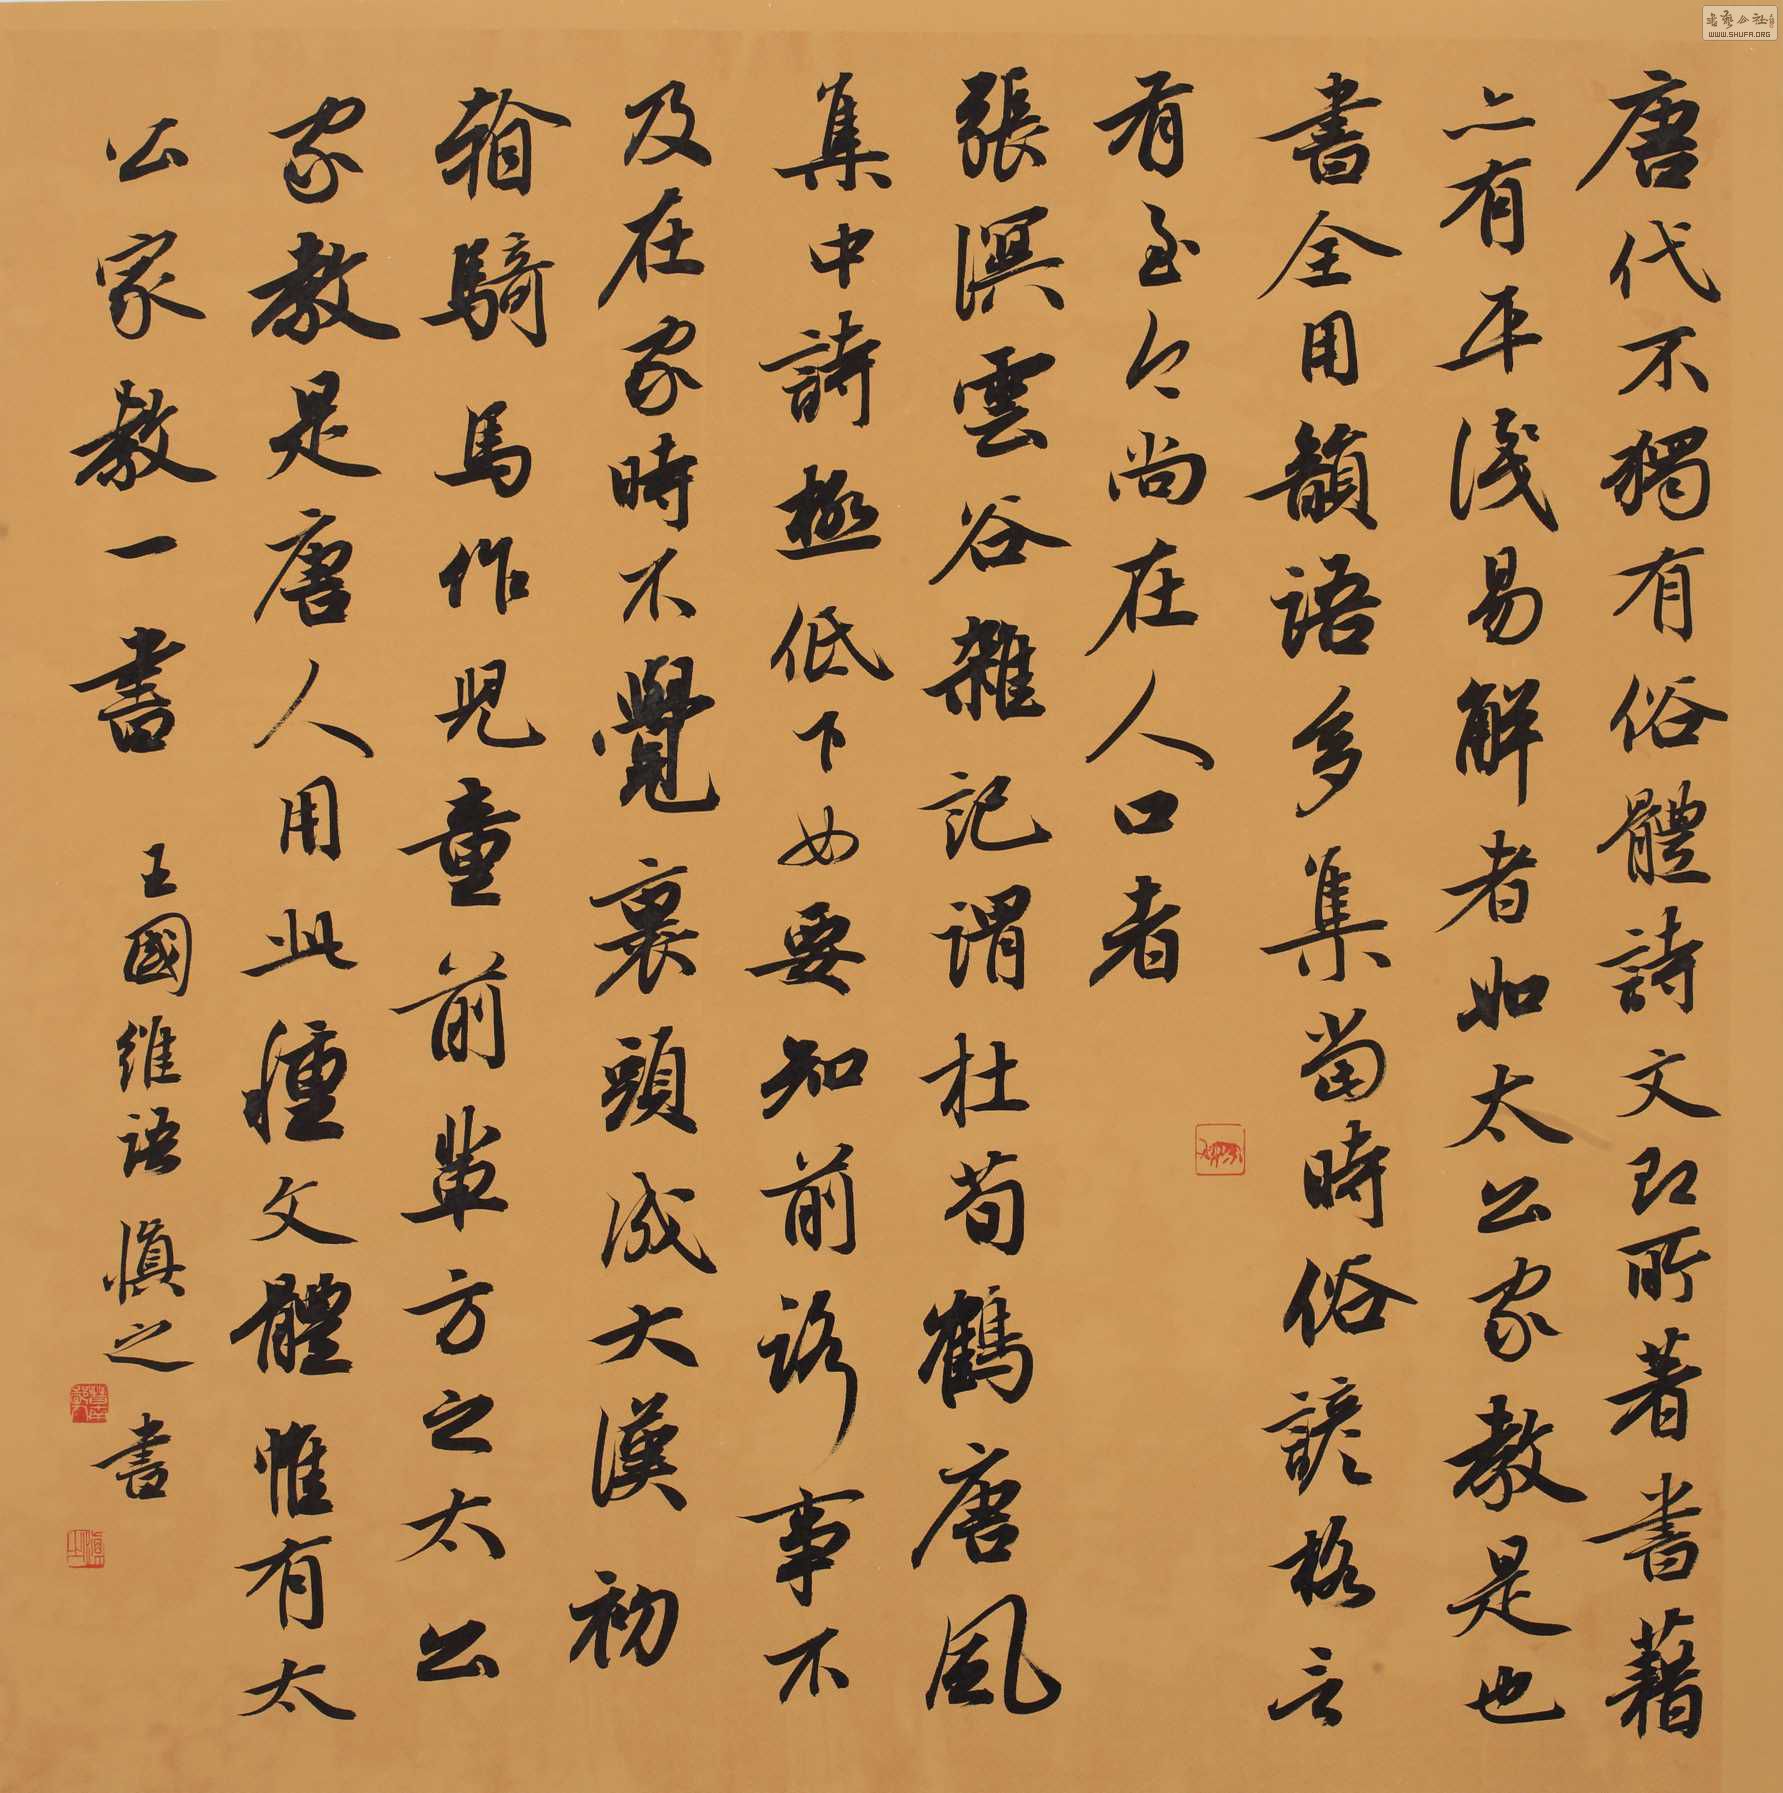 唐代不獨有俗體詩文即所著書籍
亦有平淺易解者如太公家教是也
書全用韻語多集當時俗諺格言
有至今尚在人口者
張淏雲谷雜記謂杜荀鶴唐風
集中詩極低下如要知前路事不
及在家時不覺裏頭成大漢初
看騎馬作兒童前輩方之太公
家教是唐人用此種文體惟有太
公家教一書
王國維語 慎之書
慎之
書藝公社
WWW.SHUFA.ORG